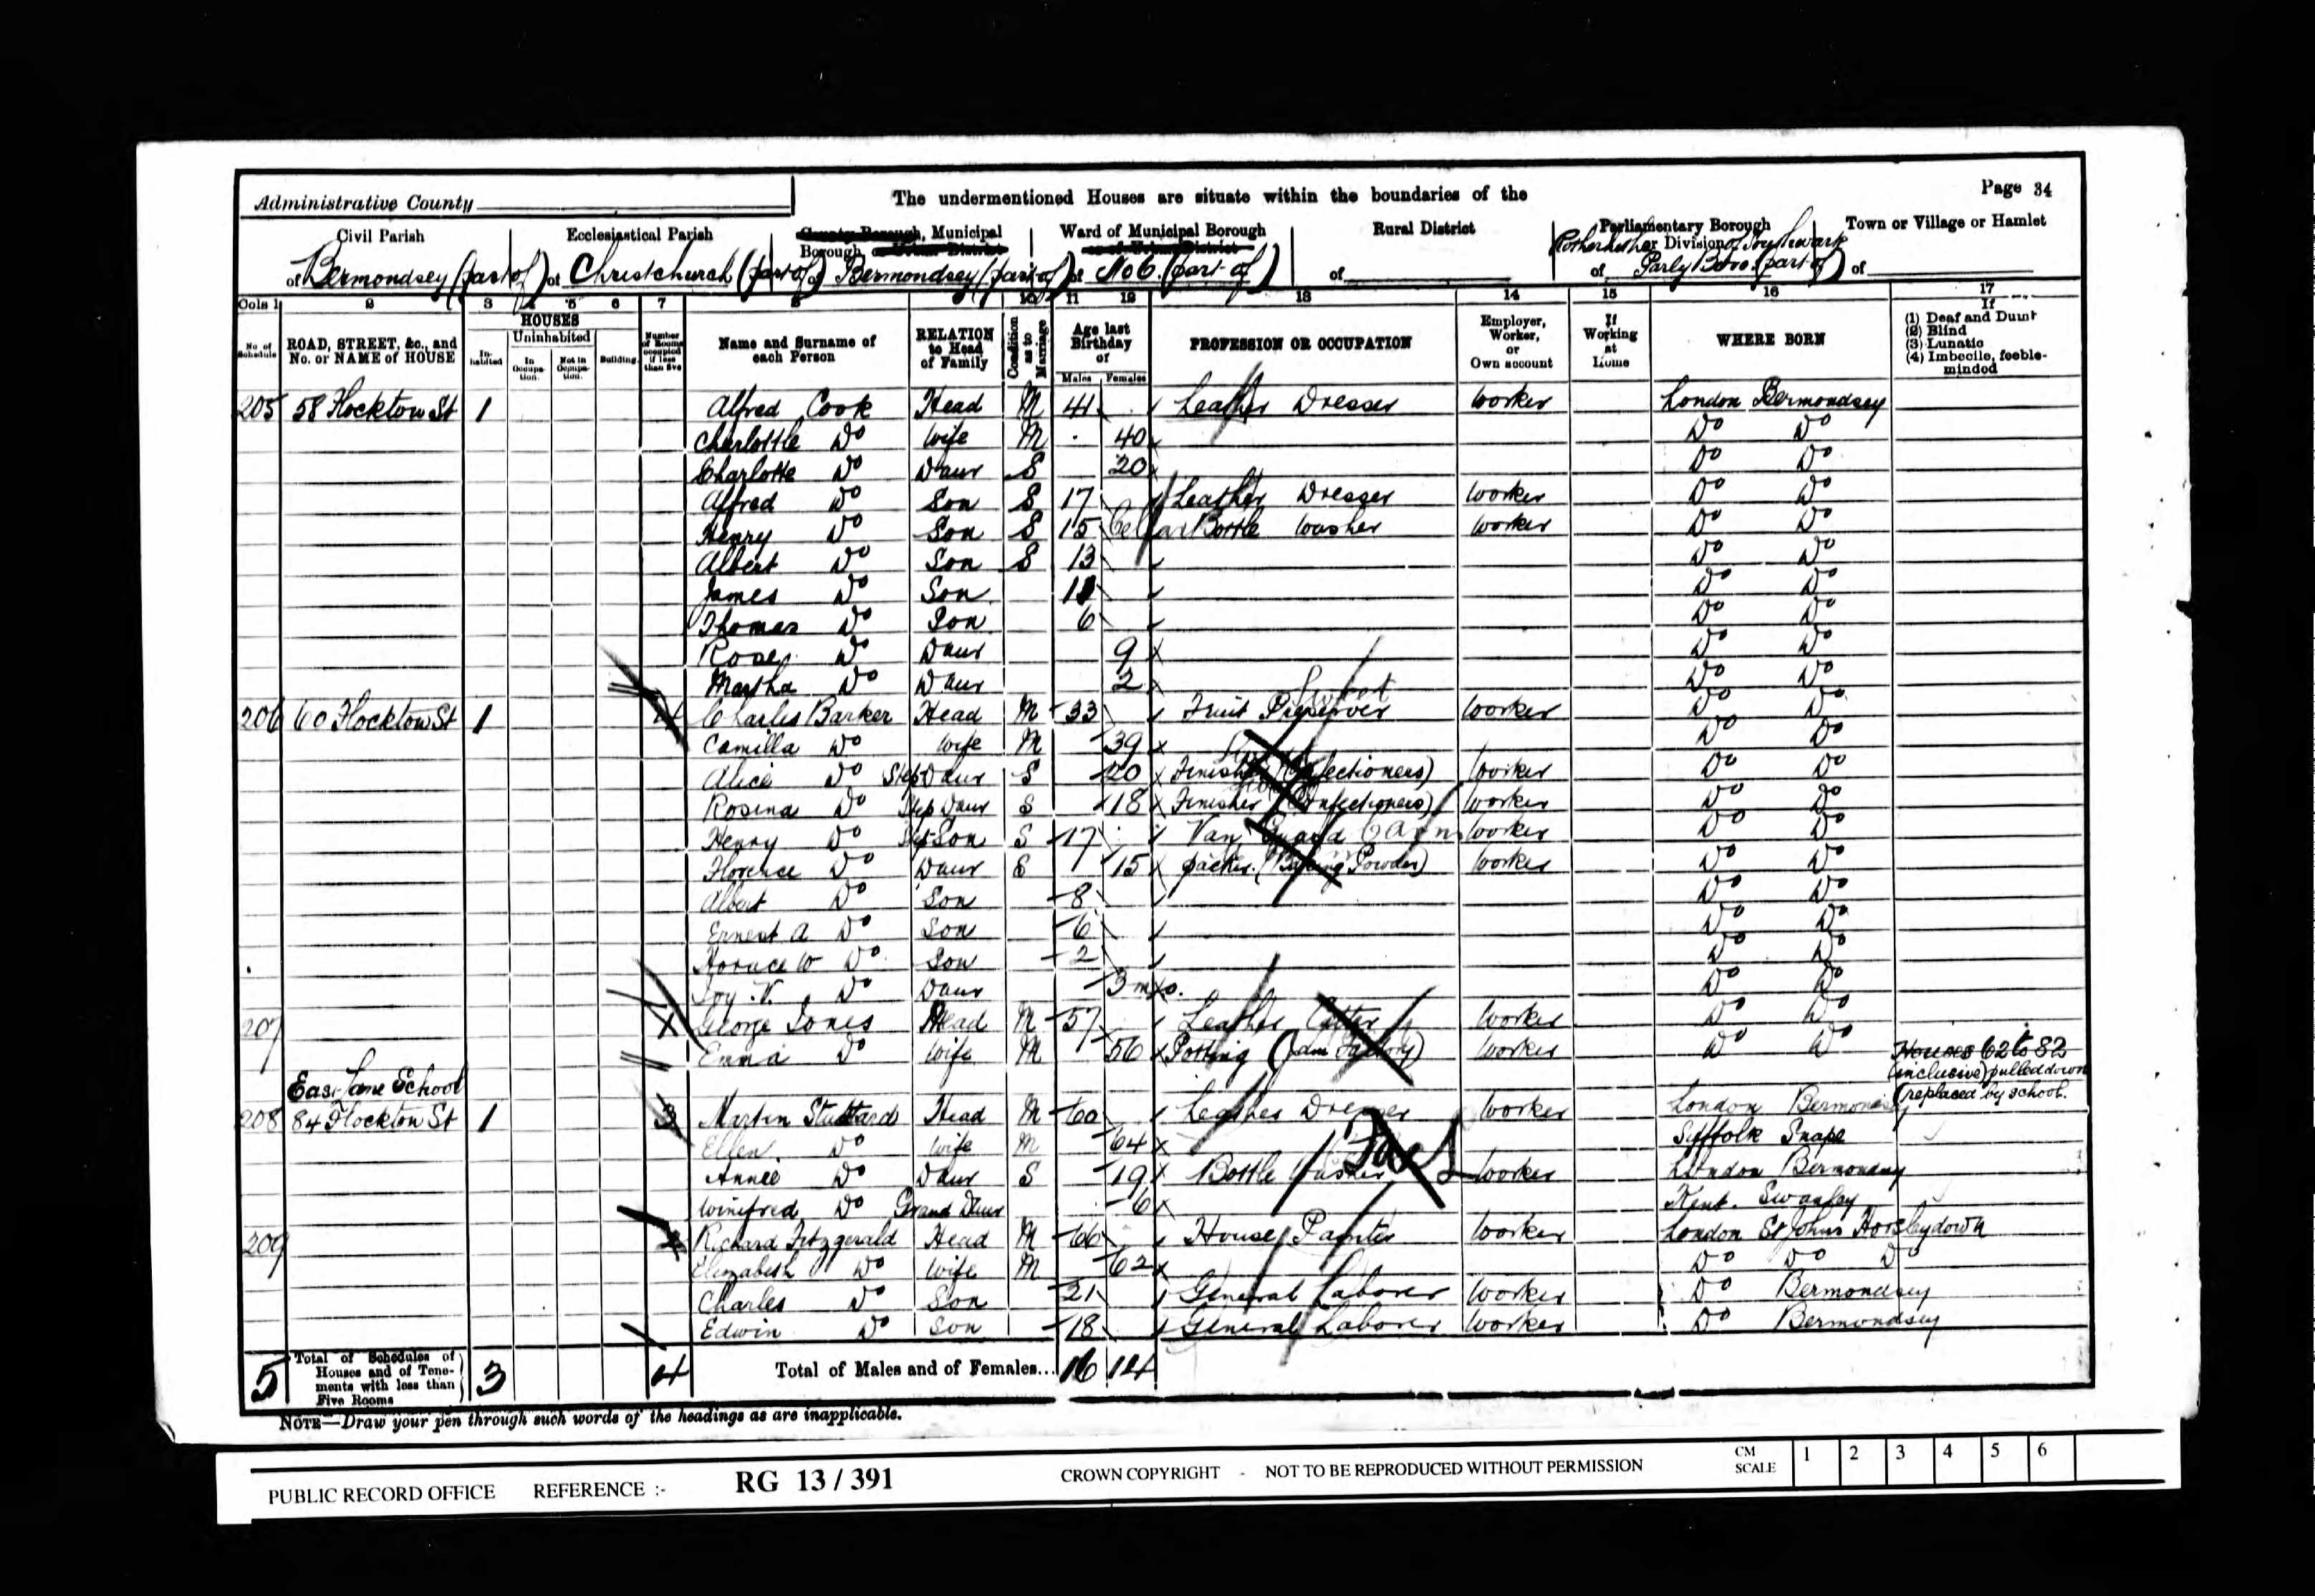 Page 34
The undermentioned Houses are situate within the boundaries of the
Administrative County
Civil Parish
of Bermondsey (part of)
Ecclesiastical Parish
of Christchurch (part of)
County Borough, Municipal
Borough or Urban District
of Bermondsey (part of)
Ward of Municipal Borough
or of Urban District
of No 6. (part of)
Rural District
of
Parliamentary Borough
or Division
Rotherhithe of Southwark
of Parly Boro. (part of)
Town or Village or Hamlet
of
Cols 1 2 3 4 5 6 7 8 9 10 11 12 13 14 15 16 17
No. of Schedule
ROAD, STREET, &c., and No. or NAME of HOUSE
HOUSES
Inhabited
Uninhabited
In Occupation.
Not in Occupation.
Building.
Number of Rooms occupied if less than five
Name and Surname of each Person
RELATION to Head of Family
Condition as to Marriage
Age last Birthday of
Males Females
PROFESSION OR OCCUPATION
Employer, Worker, or Own account
If Working at Home
WHERE BORN
If
(1) Deaf and Dumb
(2) Blind
(3) Lunatic
(4) Imbecile, feeble-minded
205 58 Flockton St 1 Alfred Cook Head M 41 Leather Dresser Worker London Bermondsey
Charlottle Do Wife M 40 Do Do
Charlotte Do Daur S 20 Do Do
Alfred Do Son S 17 Leather Dresser Worker Do Do
Henry Do Son S 15 Cellar Bottle Washer Worker Do Do
Albert Do Son S 13 Do Do
James Do Son 11 Do Do
Thomas Do Son 6 Do Do
Rose Do Daur 9 Do Do
Martha Do Daur 2 Do Do
206 60 Flockton St 1 4 Charles Barker Head M 33 Fruit Preserver Worker Do Do
Camilla Do Wife M 39 Do Do
Alice Do Step Daur S 20 Finisher (Confectioners) Worker Do Do
Rosina Do Step Daur S 18 Finisher (Confectioners) Worker Do Do
Henry Do Step Son S 17 Van Guard Carm Worker Do Do
Florence Do Daur S 15 Packer. (Baking Powder) Worker Do Do
Albert Do Son 8 Do Do
Ernest A Do Son 6 Do Do
Horace W Do Son 2 Do Do
Ivy. V. Do Daur 3 mo. Do Do
207 George Jones Head M 57 Leather Cutter Worker Do Do
Emma Do Wife M 56 Potting (Jam Factory) Worker Do Do
Houses 62 to 82
(inclusive) pulled down
(replaced by school.
East Lane School
208 84 Flockton St 1 3 Martin Studdard Head M 60 Leather Dresser Worker London Bermondsey
Ellen. Do Wife M 64 Suffolk Snape
Annie Do Daur S 19 Bottle Washer Worker London Bermondsey
Winifred Do Grand Daur 6 Kent. Swanley
209 2 Richard Fitzgerald Head M 66 House Painter Worker London St Johns Horsleydown
Elizabeth Do Wife M 62 Do Do Do
Charles Do Son 21 General Laborer Worker Do Bermondsey
Edwin Do Son 18 General Laborer Worker Do Bermondsey
5 Total of Schedules of Houses and of Tenements with less than Five Rooms 3 4 Total of Males and of Females... 16 14
NOTE—Draw your pen through such words of the headings as are inapplicable.
PUBLIC RECORD OFFICE REFERENCE :- RG 13 / 391 CROWN COPYRIGHT - NOT TO BE REPRODUCED WITHOUT PERMISSION CM SCALE 1 2 3 4 5 6